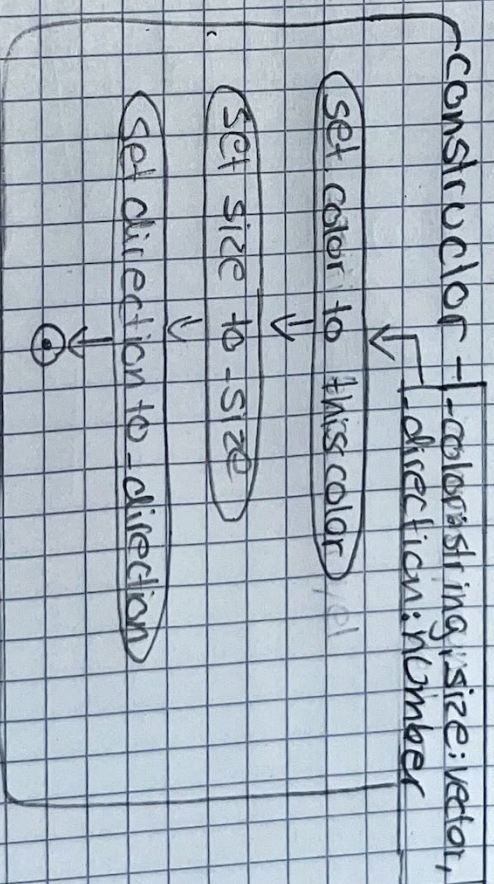 constructor
_color:string, size:vector,
_direction:number
set color to this color
set size to _size
set direction to _direction